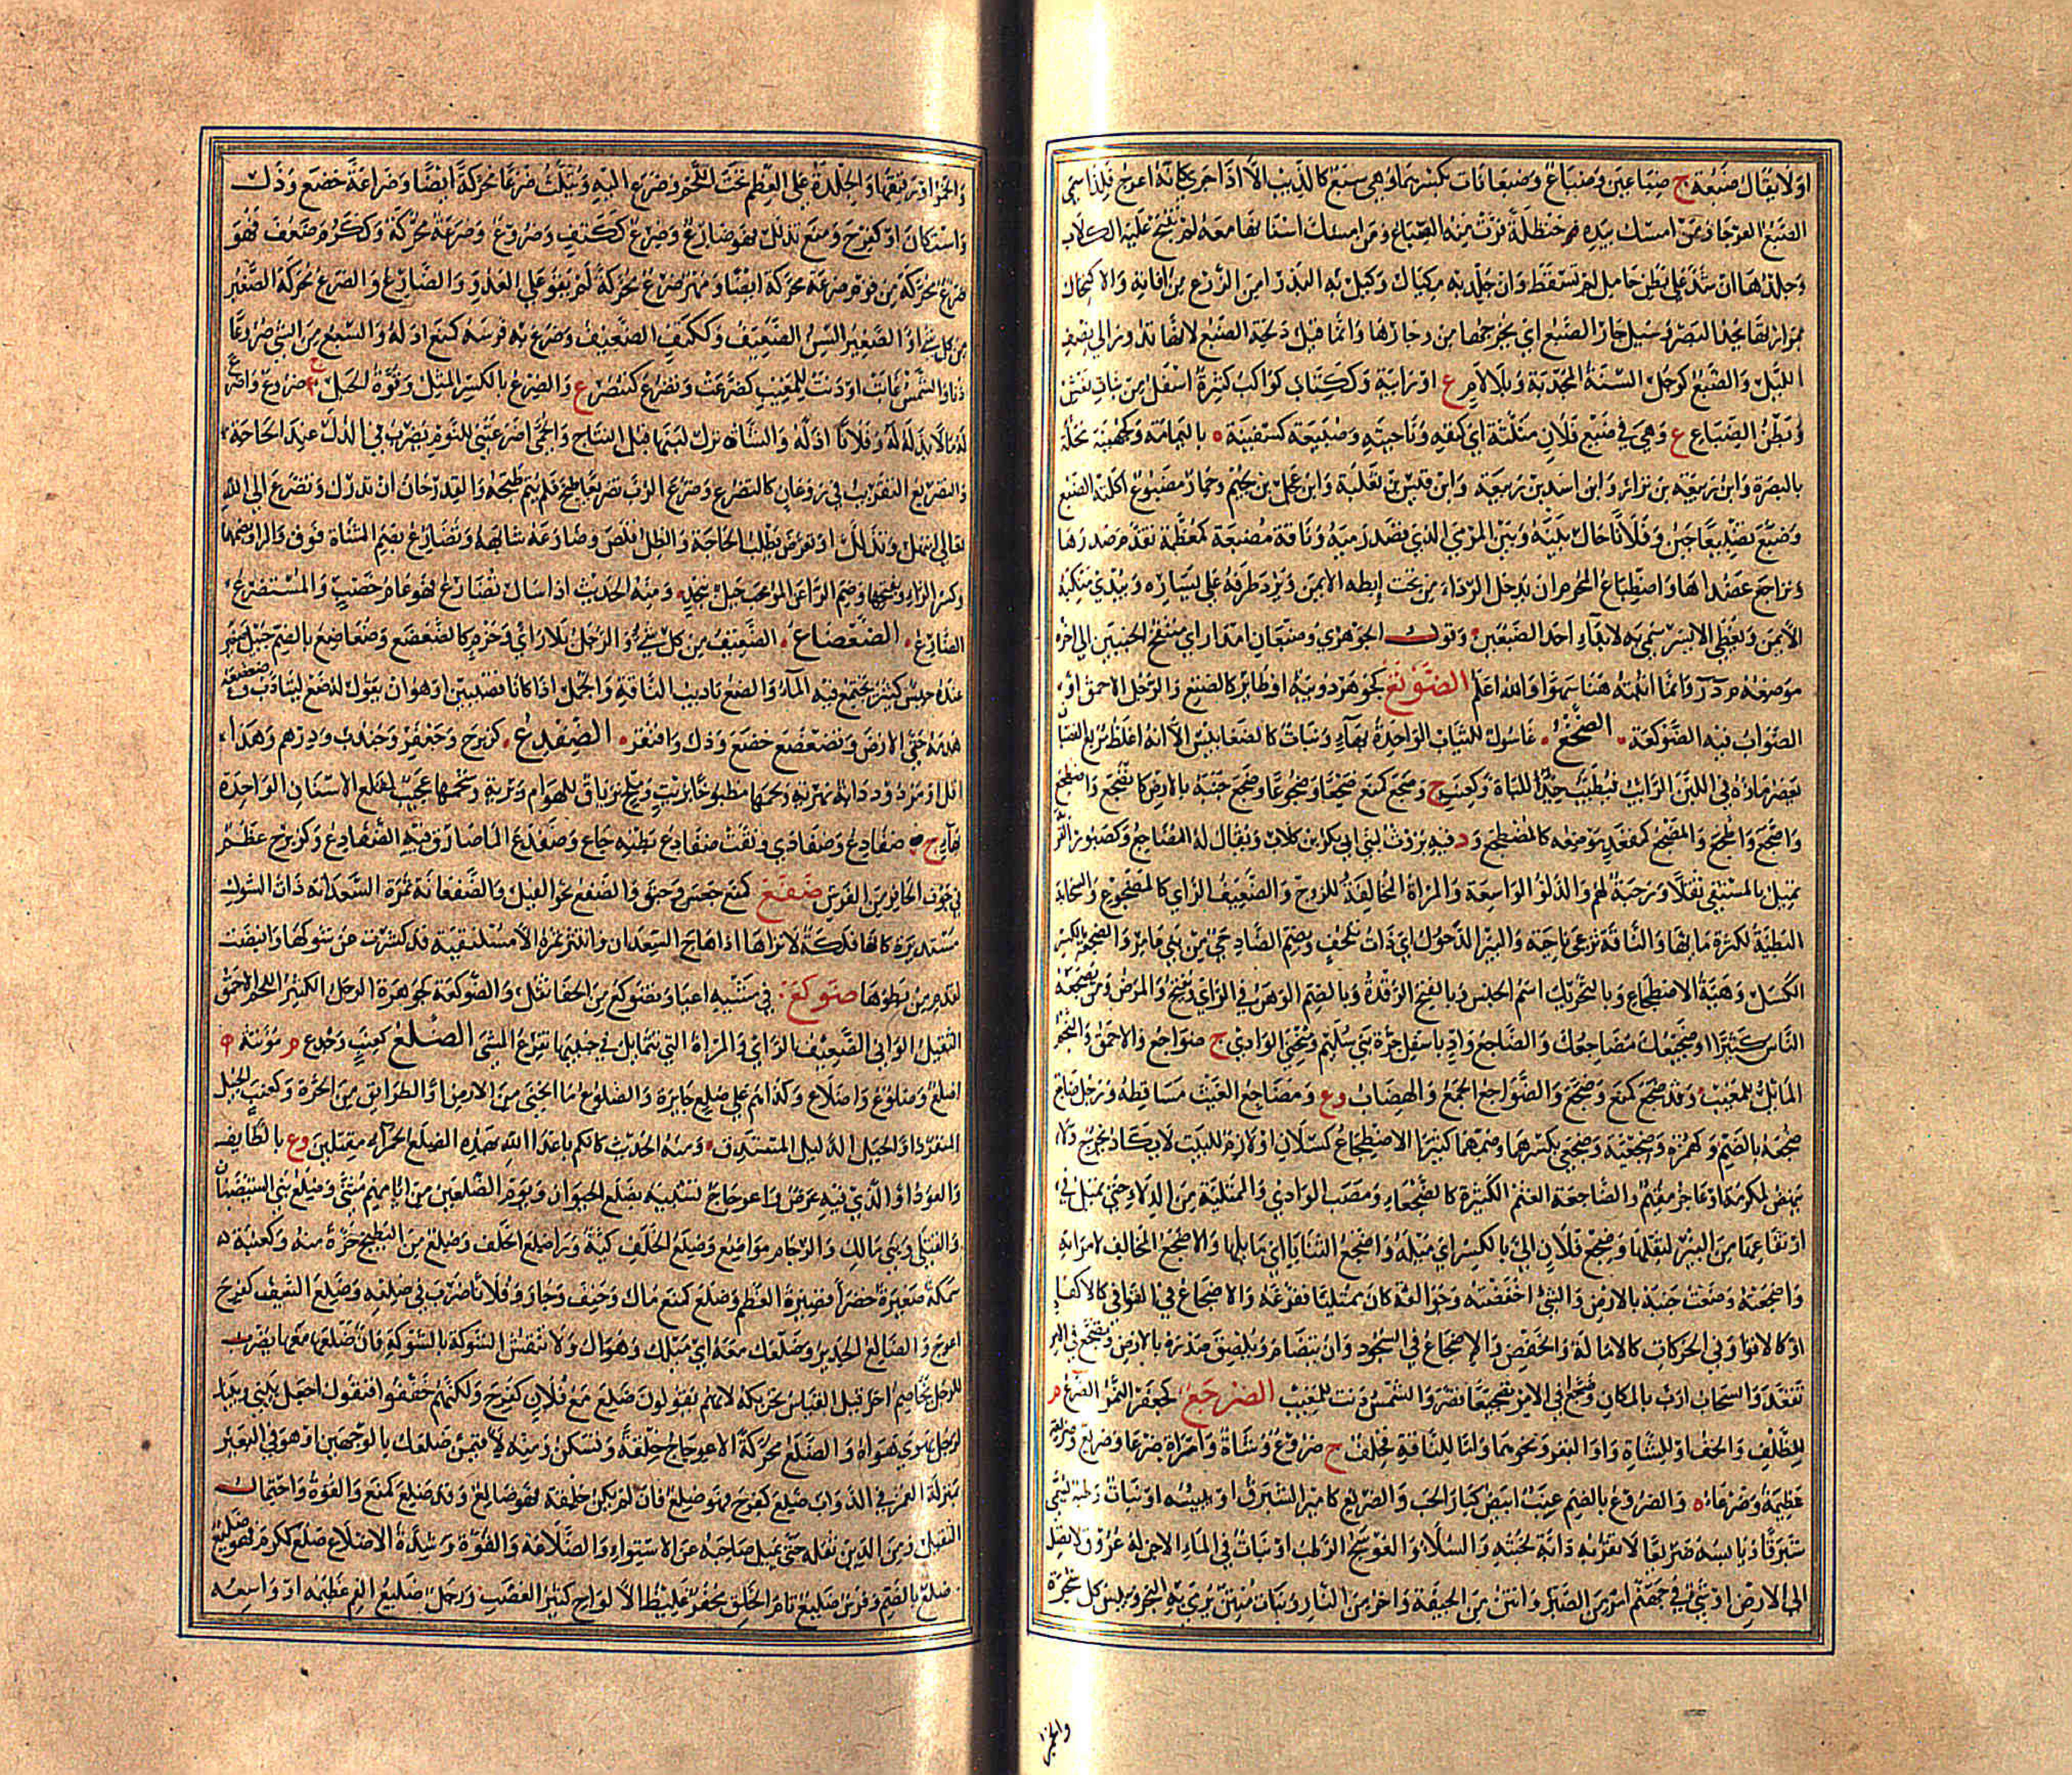 اولا يقال ضبعة ج ضباعين وضباع وضبعانات بكسرهما وهي سبع كالذئب الا اذا جرى كانه اعرج فلذا سمي
الضبع العرجا ومن امسك بيده حنظلة فرت منه الضباع ومن امسك اسنانها معه لم تنبح عليه الكلاب
وجلدها ان شد على بطن حامل لم تسقط وان جلد به مكيال وكيل به البذر امن الزرع من افاته والاكتحال
بمرارتها يحد البصر وسيل جار الضبع اي يخرجها من وجارها وانما قيل دلجة الضبع لانها تدور الى نصف
الليل والضبع كرجل السنة المجدبة وبلا لام ع او رابية وككتاب كواكب كثيرة اسفل من بنات نعش
وبطن الضباع ع وهي في ضبع فلان مثلثة اي كنفه وناحيته وضبيعة كسفينة ه باليمامة وكجهينة محلة
بالبصرة وابن ربيعة بن نزار وابن اسد بن ربيعة وابن قيس بن ثعلبة وابن عجل بن لجيم وحمار مضبوع اكلته الضبع
وضبع تضبيعا جبن وفلانا حال بينه وبين المرمي الذي قصد رميه وناقة مضبعة كمعظمة تقدم صدرها
وتراجع عضداها واضطباع المحرم ان يدخل الرداء من تحت ابطه الايمن ويرد طرفه على يساره ويبدي منكبه
الايمن ويغطي الايسر سمي به لابداء احد الضبعين وقول الجوهري وضبعان امدر اي منتفخ الجنبين الى اخره
موضعه مدر وانما اثبته هنا سهوا والله اعلم الضتوتع كجوهر دويبة او طاير كالضتع والرجل الاحمق او
الصواب فيه الضوكعة الضجع غاسول للثياب الواحدة بهاء ونبات كالضغابيس الا انه اغلظ مربع القضبان
يعصر ماؤه في اللبن الرائب فيطيب جيد للباءة وكعنب ج وضجع كمنع ضجعا وضجوعا وضع جنبه بالارض كانضجع واضطجع
واضجع والطجع والمضجع كمقعد موضعه كالمضطجع ود فيه بروث لبني ابي بكر بن كلاب ويقال له المضاجع وكصبور القر
يميل بالمستقي ثقلا ورحبة لهم والدلو الواسعة والمراة المخالفة للزوج والضعيف الراي كالمضجوع والسحابة
البطيئة لكثرة مائها والناقة ترعى ناحية والبئر الدحول اي ذات تلجف وبضم الضاد حي من بني عامر والضجعة بالكسر
الكسل وهيئة الاضطجاع وبالتحريك اسم الجنس وبالفتح الرقدة وبالضم الوهن في الراي ويفتح والمرض ومن يضجعه
الناس كثيرا وضجيعك مضاجعك والضاجع واد باسفل حرة بني سليم ومنحنى الوادي ج ضواجع والاحمق والنجم
المائل للمغيب وقد ضجع كمنع وضجع والضواجع الجمع والهضاب وع ومضاجع الغيث مساقطه ورجل ضاجع
ضجعة بالضم وكهمزة وضجعية وضجعي بكسرهما وضمهما كثير الاضطجاع كسلان او لازم للبيت لا يكاد يخرج ولا
ينهض لمكرمة او عاجز مقيم والضاجعة الغنم الكثيرة كالضجعاء ومصب الوادي والممتلئة من الدلاء حتى تميل في
ارتفاعها من البئر لثقلها وضجع فلان الي بالكسر اي ميله واضجع الثنايا اي مائلها والاضجع المخالف لامراته
واضجعته وضعت جنبه بالارض والشيء اخفضته وجوالقه كان ممتليا ففرغه والاضجاع في القوافي كالاكفاء
او كالاقواء وفي الحركات كالامالة والخفض والاضجاع في السجود وان يتضام ويلصق صدره بالارض وتضجع في الامر
تقعد والسحاب ارب بالمكان وضجع في الامر تضجيعا قصر والشمس دنت للمغيب الضرجع كجعفر النمر الضرع م
للظلف والخف او للشاة والبقر ونحوهما واما للناقة فخلف ج ضروع وشاة وامراة ضرعاء وضريع وضريعة
عظيمة وضرعاء ه والضروع بالضم عنب ابيض كبار الحب والضريع كامير الشبرق او يبيسه او نبات رطبه يسمى
شبرقا ويابسه ضريعا لا تقربه دابة لخبثه والسلاء والعوسج الرطب او نبات في الماء الاجن له عروق لا تصل
الى الارض او شيء في جهنم امر من الصبر وانتن من الجيفة واحر من النار ونبات منتن يرمي به البحر ويبيس كل شجرة
والخمر
والخمر او رقيقها والجلدة على العظم تحت اللحم وضرع اليه ويثلث ضرعا محركة ايضا وضراعة خضع وذل
واستكان او كفرح ومنع تذلل فهو ضارع وضرع ككتف وضروع وضرعة محركة وككرم ضعف فهو
ضرع محركة من قوم ضرعة محركة ايضا ومهر ضرع محركة لم يقو على العدو والضارع والضرع محركة الصغير
من كل شيء او الصغير السن الضعيف وككتف الضعيف وضرع به فرسه كمنع اذله والسبع من الشيء ضروعا
دنا والشمس غابت او دنت للمغيب كضرعت وتضرع كتنصر ع والضرع بالكسر المثل وقوة الحبل ج ضروع واضرع
له مالا بذله له وفلانا اذله والشاة نزل لبنها قبل النتاج والحمى اضرعتني للنوم يضرب في الذل عند الحاجة
والتضريع التقرب في روغان كالتضرع وضرع الرب تضريعا طبخ فلم يتم طبخه والقدر حان ان تدرك وتضرع الى الله
تعالى ابتهل وتذلل او تعرض بطلب الحاجة والظل قلص وضارعه شابهه وتضارع بضم المثناة فوق والراء وبضمها
وكسر الراء وبفتحها وضم الراء عن الموعب جبل بنجد ومنه الحديث اذا سال تضارع فهو عام خصب والمستضرع
الضارع الضعضاع الضعيف من كل شيء والرجل بلا راي وحزم كالضعضع وضعاضع بالضم جبل صغير
عنده حبس كبير يجتمع فيه الماء والضع تاديب الناقة والجمل اذا كانا قضيبين او هو ان يقول له ضع ليتادب وضعضعه
هدمه حتى الارض وتضعضع خضع وذل وافتقر الضفدع كزبرج وجعفر وجندب ودرهم وهذا
اقل او مردود دابة نهرية ولحمها مطبوخا بزيت وملح ترياق للهوام وبرية وشحمها عجيب لقلع الاسنان الواحدة
بهاء ج ضفادع وضفادي ونقت ضفادع بطنه جاع وضفدع الماء صار فيه الضفادع وكزبرج عظم
في جوف الحافر من الفرس ضفع كمنع جعس وحبق والضفع نحو الفيل والضفعانة ثمرة السعدانة ذات الشوك
مستديرة كانها فلكة لا تراها اذا هاج السعدان وانتثر ثمره الا مستلقية قد كشرت عن شوكها وانبضت
لقدم من يطؤها ضوكع في مشيه اعيا وتضوكع من الحفا ثقل والضوكعة كجوهرة الرجل الكثير اللحم الاحمق
الثقيل الواني الضعيف الراي والمراة التي تتمايل في جنبيها تفرع المشي الضلع كعنب وجذع م مؤنثة ج
اضلع وضلوع واضلاع وكذا هم علي ضلع جائرة والضلوع ما انحنى من الارض او الطرائق من الحرة وكعنب الجبل
المنفرد او الجبل الذليل المستدق ومنه الحديث كانكم يا عداء الله بهذه الضلع الحمراء مقتلين وع بالطائف
والعود او الذي فيه عرض واعوجاج تشبيه بضلع الحيوان ويوم الضلعين من ايامهم مثنى وضلع بني الشيصبان
والقتلى وبني مالك والرجام مواضع وضلع الخلف كية وراء ضلع الخلف وضلع من البطيخ حزة منه وكعنبة
سمكة صغيرة خضراء قصيرة العظم وضلع كمنع مال وجنف وجار وفلانا ضرب في ضلعه وضلع السيف كفرح
اعوج والضالع الجائر وضلعك معه اي ميلك وهواك ولا تنقش الشوكة بالشوكة فان ضلعها معها يضرب
للرجل يخاصم اخر قيل القياس تحريكه لانهم يقولون ضلع مع فلان كفرح ولكنهم خففوا فتقول اجعل بيني وبينك
لرجل يهوى هواه والضلع محركة الاعوجاج خلقة وتسكن ومنه لاقيمن ضلعك بالوجهين او هو في البعير
بمنزلة الغمز في الدواب ضلع كفرح فهو ضلع فان لم يكن خلقة فهو ضالع وقد ضلع كمنع والقوة واحتمال
الثقيل ومن الدين ثقله حتى يميل صاحبه عن الاستواء والضلاعة والقوة وشدة الاضلاع ضلع ككرم فهو ضليع
ضلع بالضم وفرس ضليع تام الخلق مجفر غليظ الالواح كثير العصب ورجل ضليع الفم عظيمه او واسعه